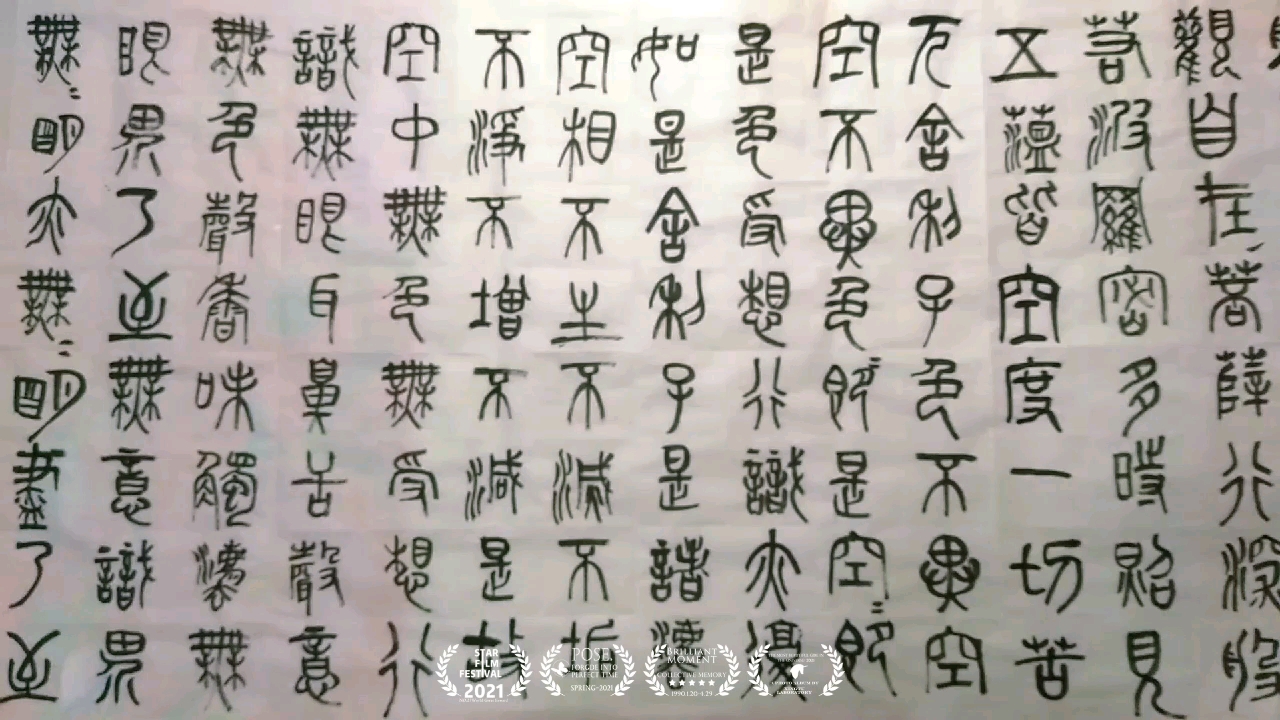 觀自在菩薩行深般
若波羅密多時照見
五蘊皆空度一切苦
厄舍利子色不異空
空不異色即〻是空〻即
是色受想行識亦復
如是舍利子是諸灋
空相不生不滅不垢
不淨不增不減是故
空中無色無受想行
識無眼耳鼻舌聲意
無色聲香味觸灋無
眼界乃至無意識界
無〻明亦無〻明盡乃至
STAR
FILM
FESTIVAL
2021
POSE
FORGOE INTO
PERFECT TIME
SPRING-2021
BRILLIANT
MOMENT
COLLECTIVE MEMORY
1990.1.20-4.29
LABORATORY